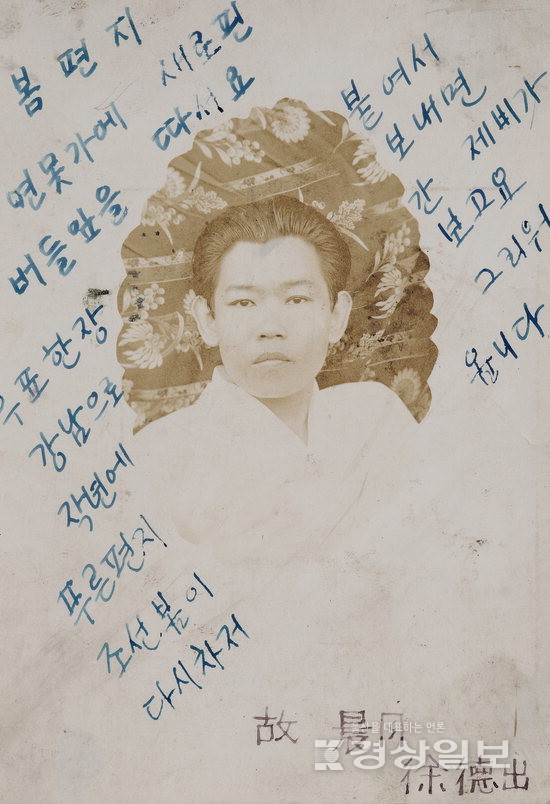 봄 편 지
연못가에 새로핀
버들잎을 따서요
우표한장 붙여서
강남으로 보내면
작년에 간 제비가
푸른편지 보고요
조선봄이 그리워
다시차저 옵니다
故 晨月
徐德出
울산을 대표하는 언론
경상일보